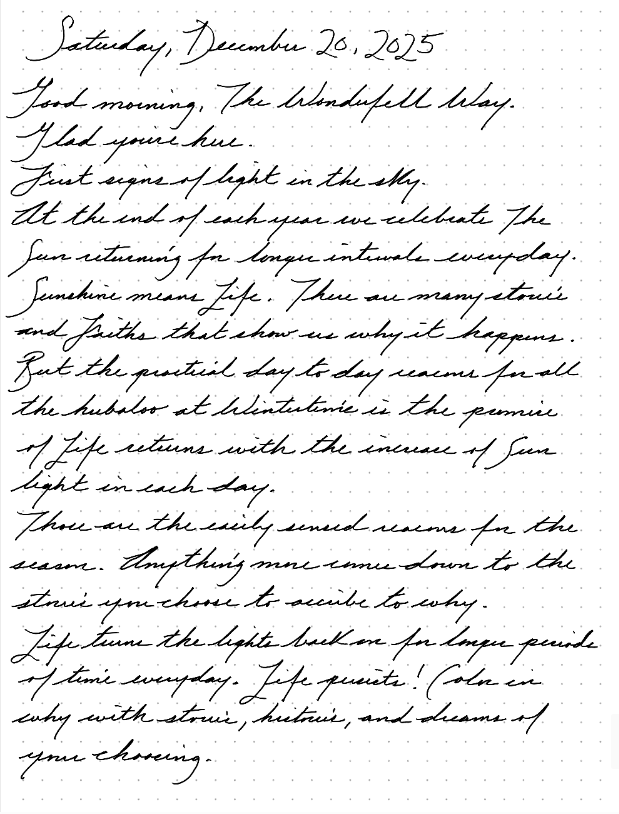 Saturday, December 20, 2025
Good morning, The Wonderfell Way.
Glad you're here.
First signs of light in the sky.
At the end of each year we celebrate The
Sun returning for longer intervals everyday.
Sunshine means Life. There are many stories
and Faiths that show us why it happens.
But the practical day to day reasons for all
the hubaloo at Wintertime is the promise
of Life returns with the increase of Sun
light in each day.
Those are the easily sensed reasons for the
season. Anything more comes down to the
stories you choose to ascribe to why.
Life turns the lights back on for longer periods
of time everyday. Life persists! Color in
why with stories, histories, and dreams of
your choosing.